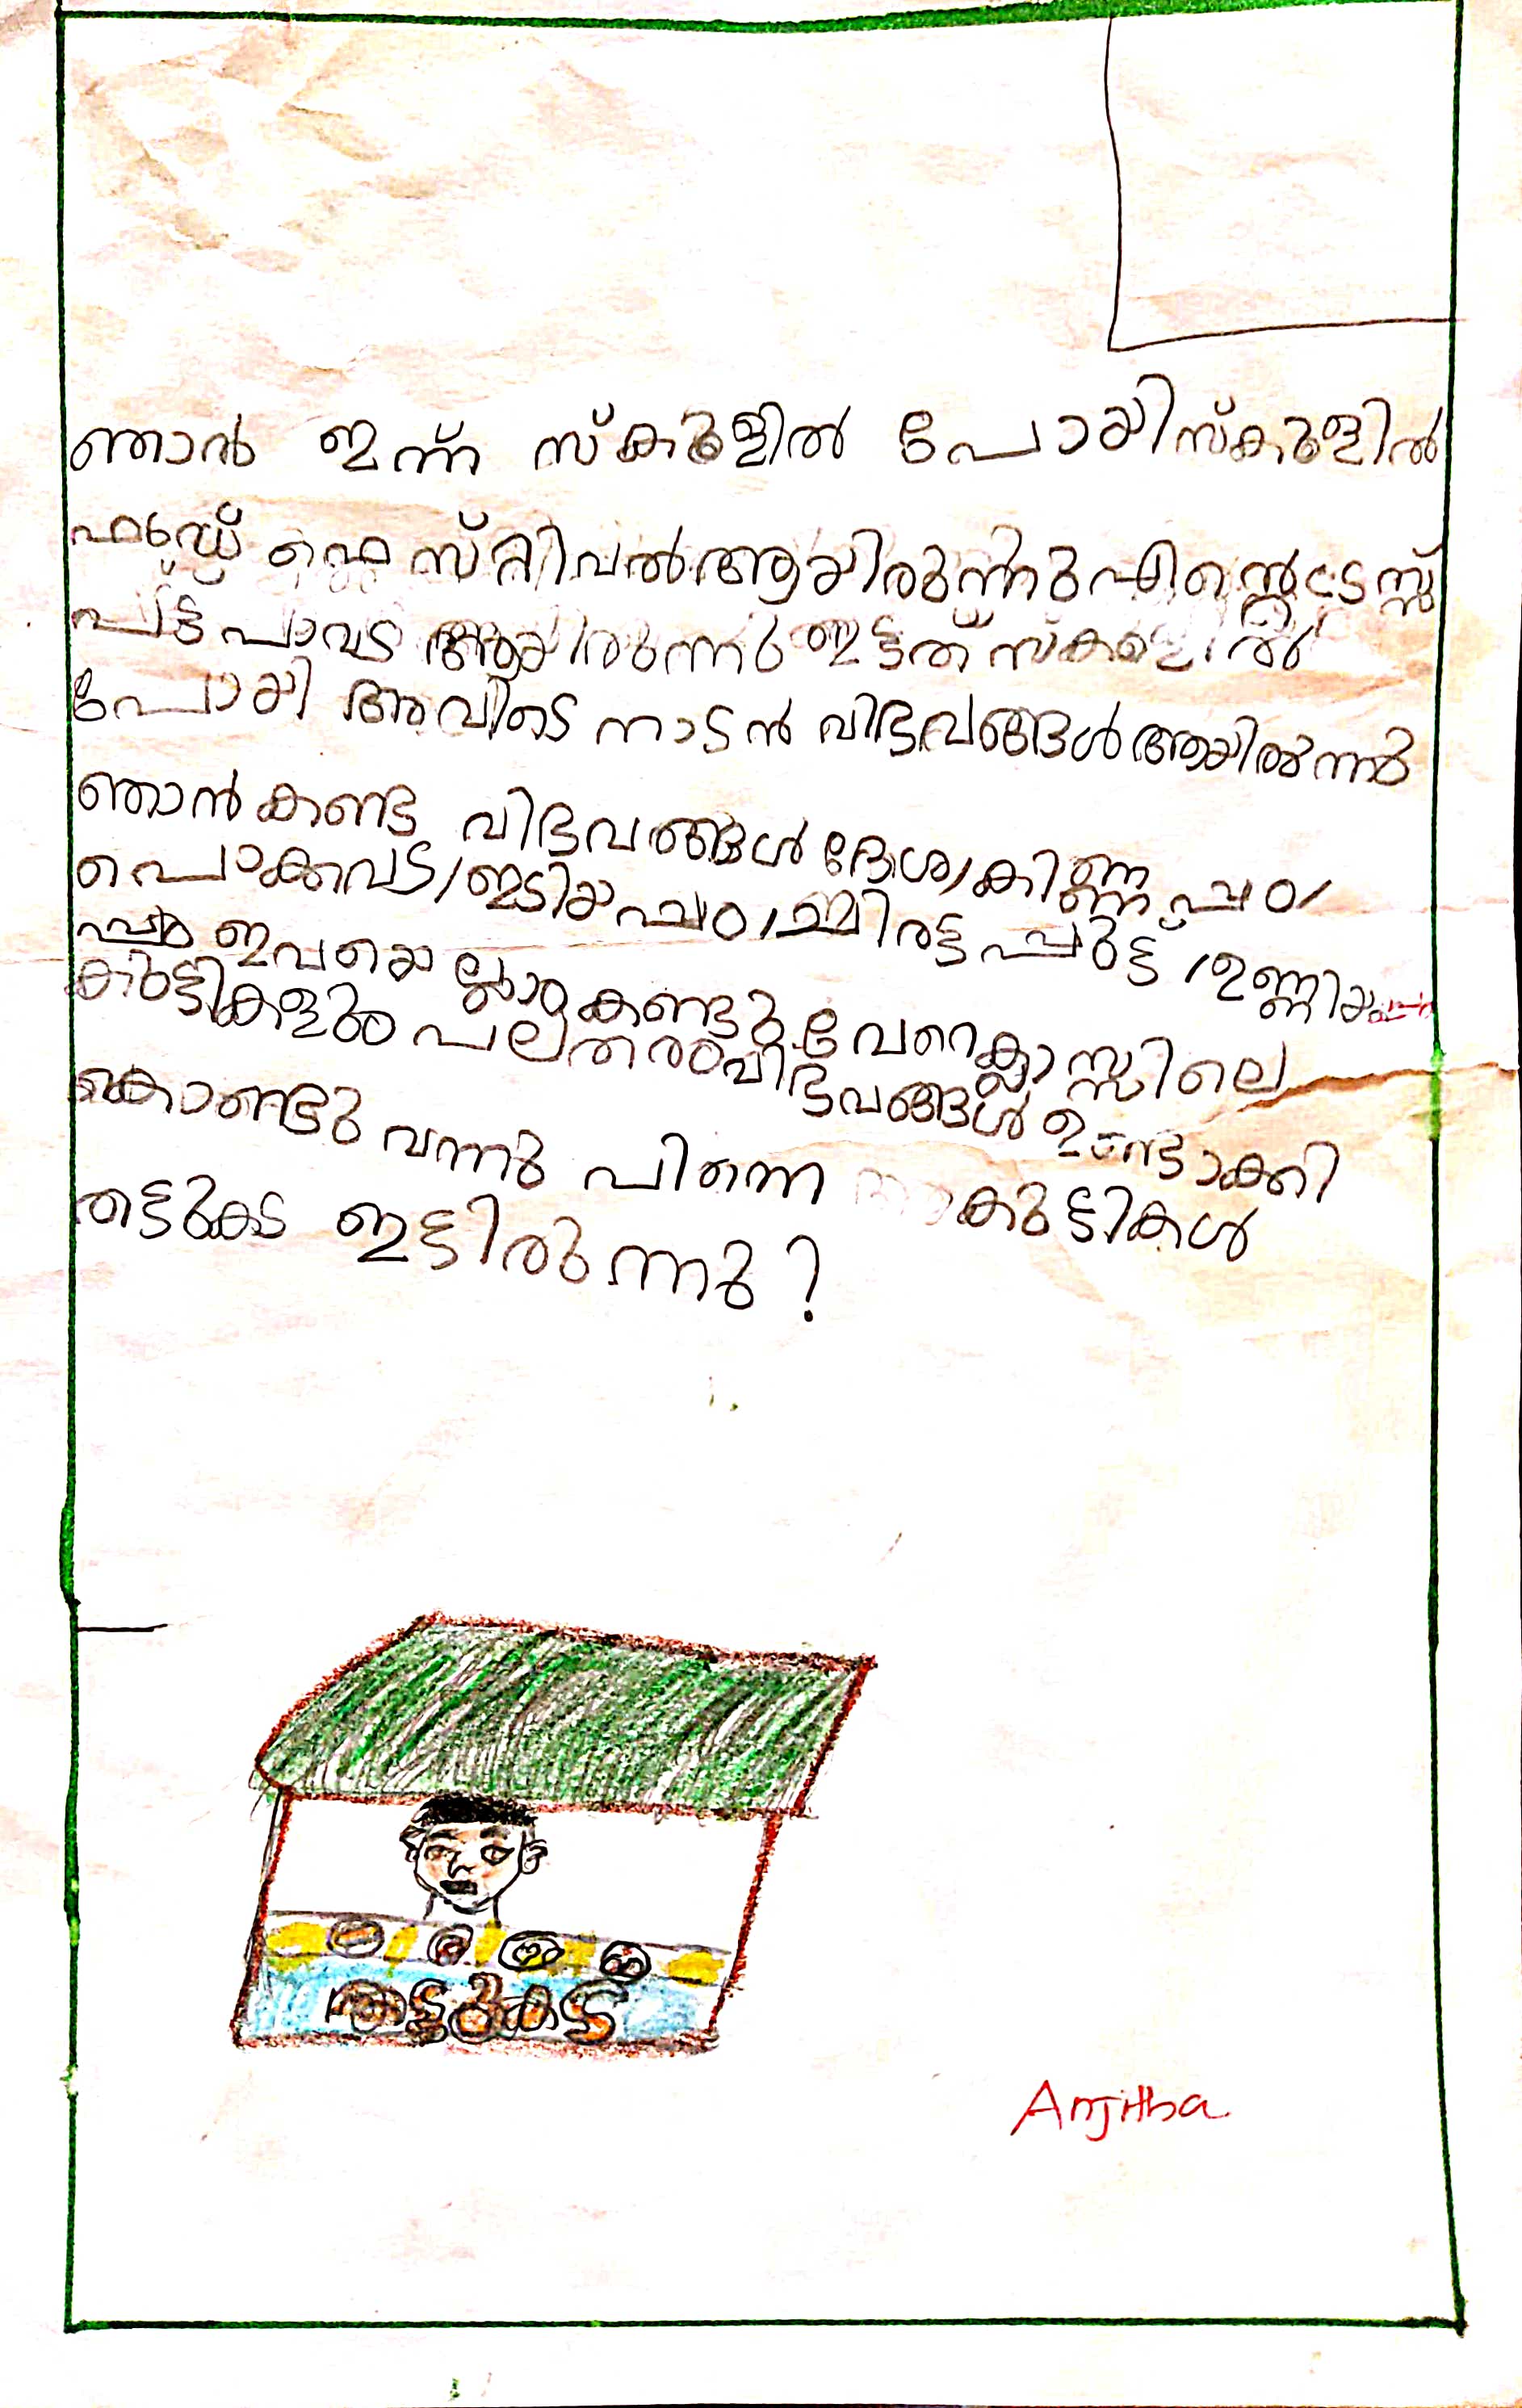 ഞാൻ ഇന്ന് സ്കുളിൽ പോയി സ്കുളിൽ
ഫുഡ് ഫെസ്റ്റിവൽ ആയിരുന്നു എന്റെ ടേസ്സ്
പട്ട് പാവട ആയിരുന്നു ഇട്ടത് സ്കുളിൽ
പോയി അവിടെ നാടൻ വിഭവങ്ങൾ ആയിരുന്നു
ഞാൻ കണ്ട വിഭവങ്ങൾ ദോശ, കിണ്ണപ്പം,
പൊക്കവട, ഇടിയപ്പം, ചിരട്ട പ്പുട്ട്, ഉണ്ണിയ
പ്പം ഇവയെല്ലാം കണ്ടു വേറെ ക്ലാസ്സിലെ
കുട്ടികളും പലതരം വിഭവങ്ങൾ ഉണ്ടാക്കി
കൊണ്ടു വന്നു പിന്നെ കുട്ടികൾ
തട്ടുകട ഇട്ടിരുന്നു?
തട്ടുകട
Anjitha